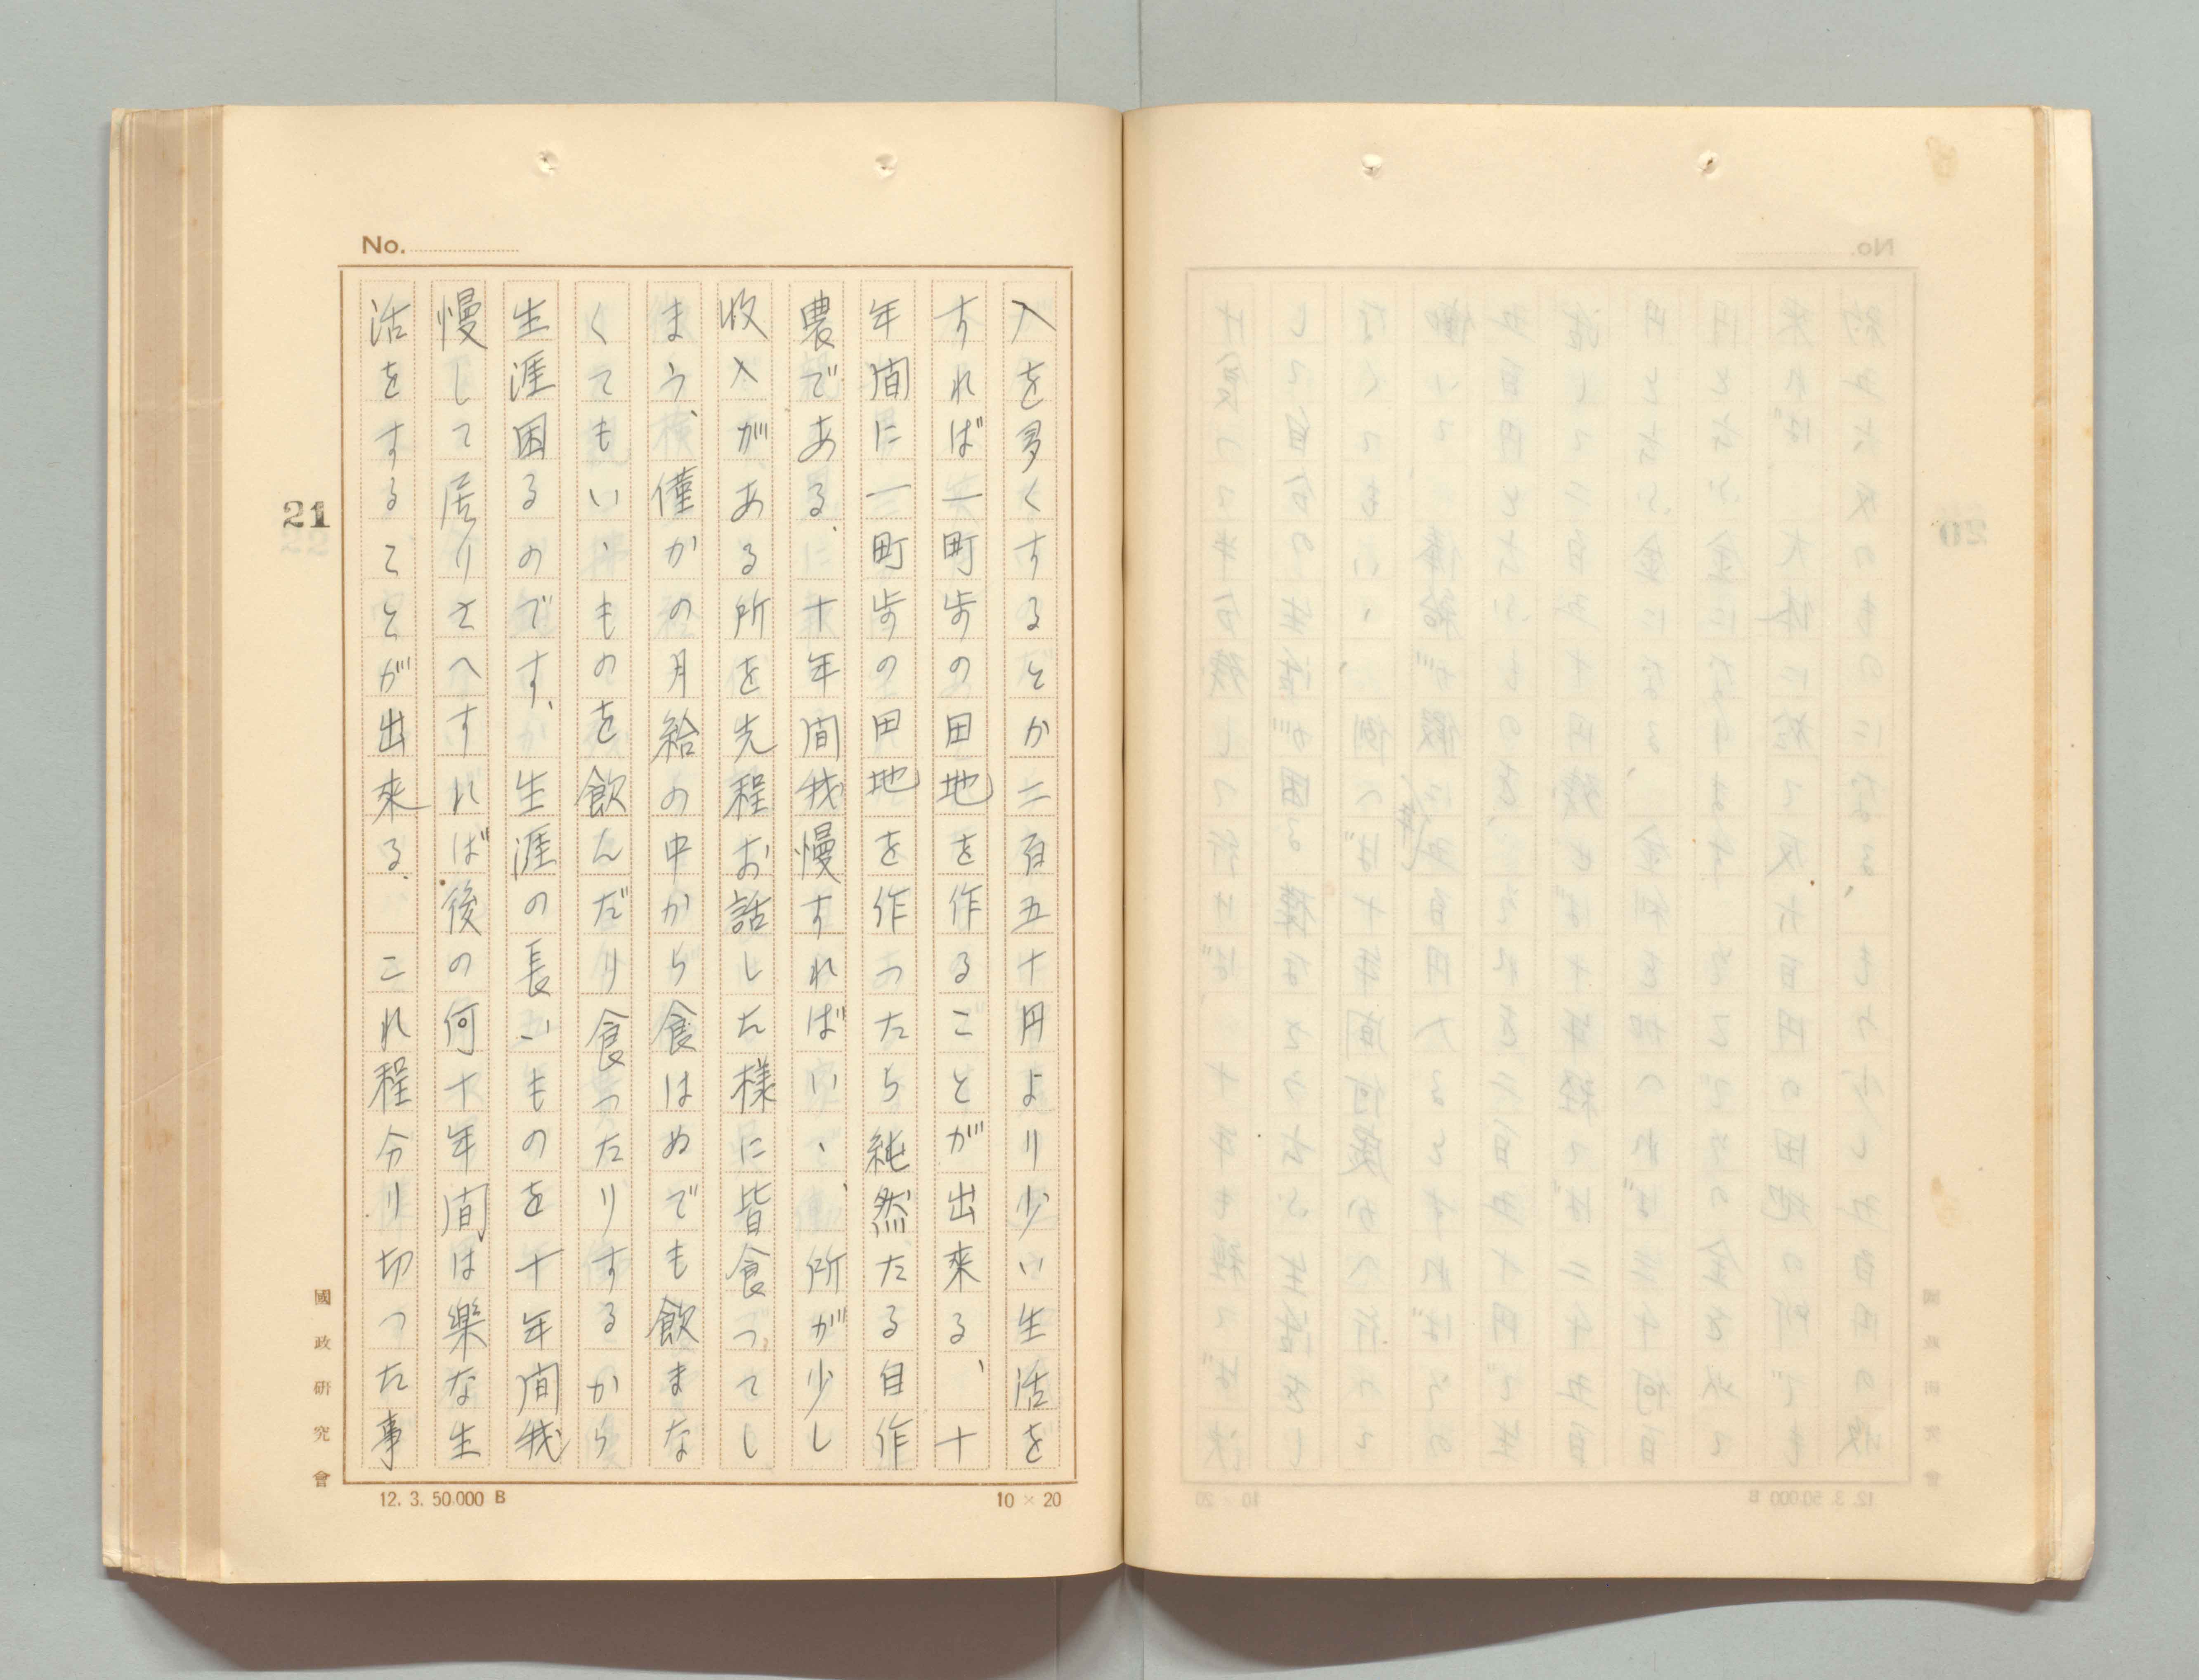 No.
入を多くするとか二百五十円より少い生活を
すれば一町歩の田地を作ることが出来る、十
年間に一町歩の田地を作つたら純然たる自作
農である、十年間我慢すればいゝ、所が少し
收入がある所を先程お話した樣に皆食つてし
まう、僅かの月給の中から食はぬでも飲まな
くてもいゝものを飲んだり食つたりするから
生涯困るのです、生涯の長いものを十年間我
慢して居りさへすれば後の何十年間は楽な生
活をすることが出來る、これ程分り切つた事
21
國政研究會
12. 3. 50.000 B
10 × 20